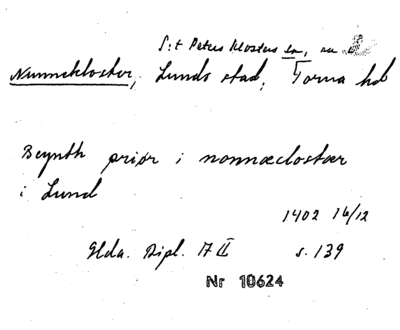 S:t Peters klosters sn, nu
Nunnekloster, Lunds stad, Torna hd
Beynth priør i nonnæclostær
i Lund
1402 16/12
Glda. Dipl. 17 II s. 139
Nr 10624